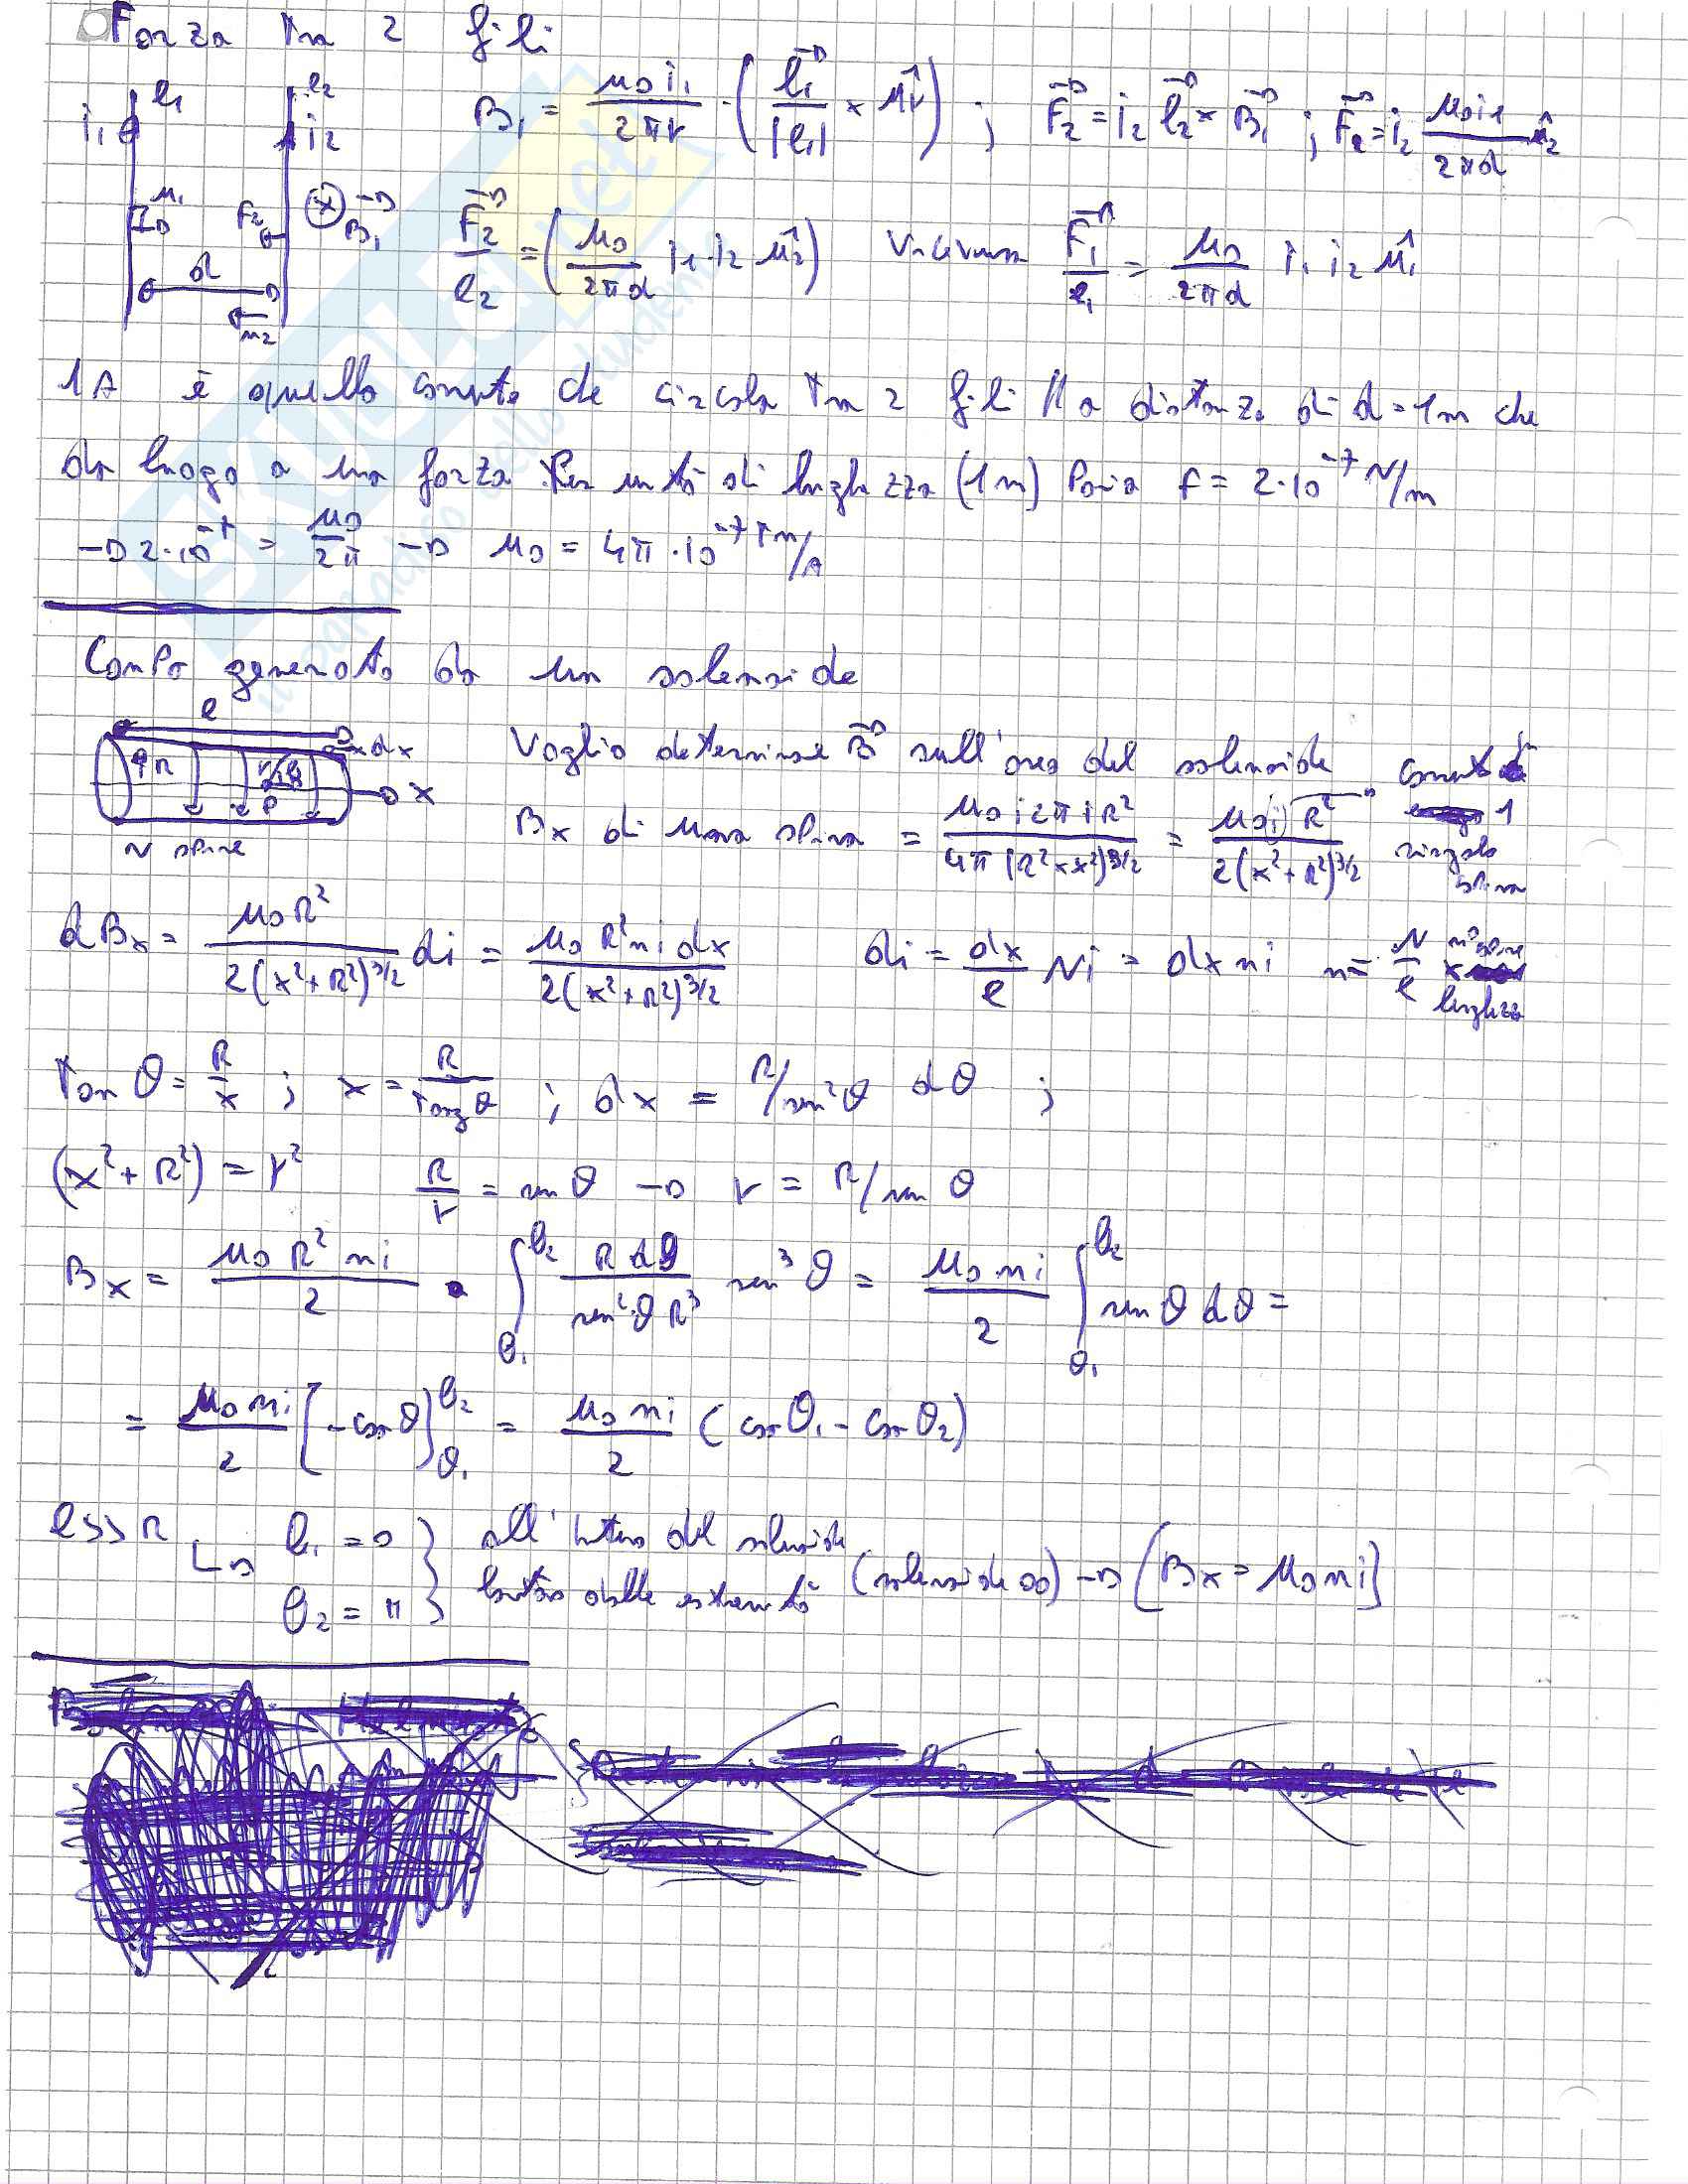 Forza tra 2 fili
i₁ l₁ l₂ i₂ B₁ = μ₀i₁/2πr · (l₁/|l₁| × û_r) ; F₂ = i₂ l₂ × B₁ ; F₂ = i₂ μ₀i₁/2πd û₂
u₁ F₂ ⊗ B₁ d u₂ F₂/l₂ = (μ₀/2πd i₁·i₂ û₂) Viceversa F₁/l₁ = μ₀/2πd i₁ i₂ û₁
1A è quella corrente che circola tra 2 fili // a distanza di d = 1m che
da luogo a una forza per unità di lunghezza (1m) Paria f = 2·10⁻⁷ N/m
→ 2·10⁻⁷ = μ₀/2π → μ₀ = 4π·10⁻⁷ Tm/A
Campo generato da un solenoide
l dx R r θ P x N spire
Voglio determinare B sull'asse del solenoide corrente
Bx di una spira = μ₀ i 2π i R²/4π(R²+x²)^3/2 = μ₀ i R²/2(x²+R²)^3/2 1 singola spira
dBx = μ₀R²/2(x²+R²)^3/2 di = μ₀ R² n i dx/2(x²+R²)^3/2 di = dx/l Ni = dx ni n = N/l n° spire x lunghezza
Tan θ = R/x ; x = R/Tang θ ; dx = R/sen²θ dθ ;
(x²+R²) = r² R/r = sen θ → r = R/sen θ
Bx = μ₀ R² ni/2 · ∫θ₁^θ₂ R dθ/sen²θ R³ sen³θ = μ₀ ni/2 ∫θ₁^θ₂ sen θ dθ =
= μ₀ ni/2 [-cos θ]θ₁^θ₂ = μ₀ ni/2 (cos θ₁ - cos θ₂)
l >> R θ₁ = 0 θ₂ = π } all'interno del solenoide lontano dalle estremità (solenoide ∞) → [Bx = μ₀ ni]